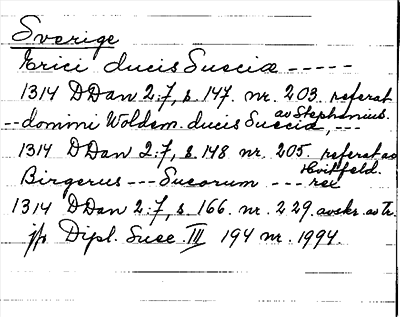 Sverige
Erici ducis Sueciæ -----
1314 DDan 2:7, s. 147. nr. 203. referat
av Stephanius.
-- domini Woldem. ducis Suecia, ---
1314 DDan 2:7, s. 148 nr. 205. referat av
Hvitfeld.
Birgerus --- Sueorum --- rex
1314 DDan 2:7, s. 166. nr. 229. avskr. av Tr.
jfr Dipl. Suec. III 194 nr. 1994.